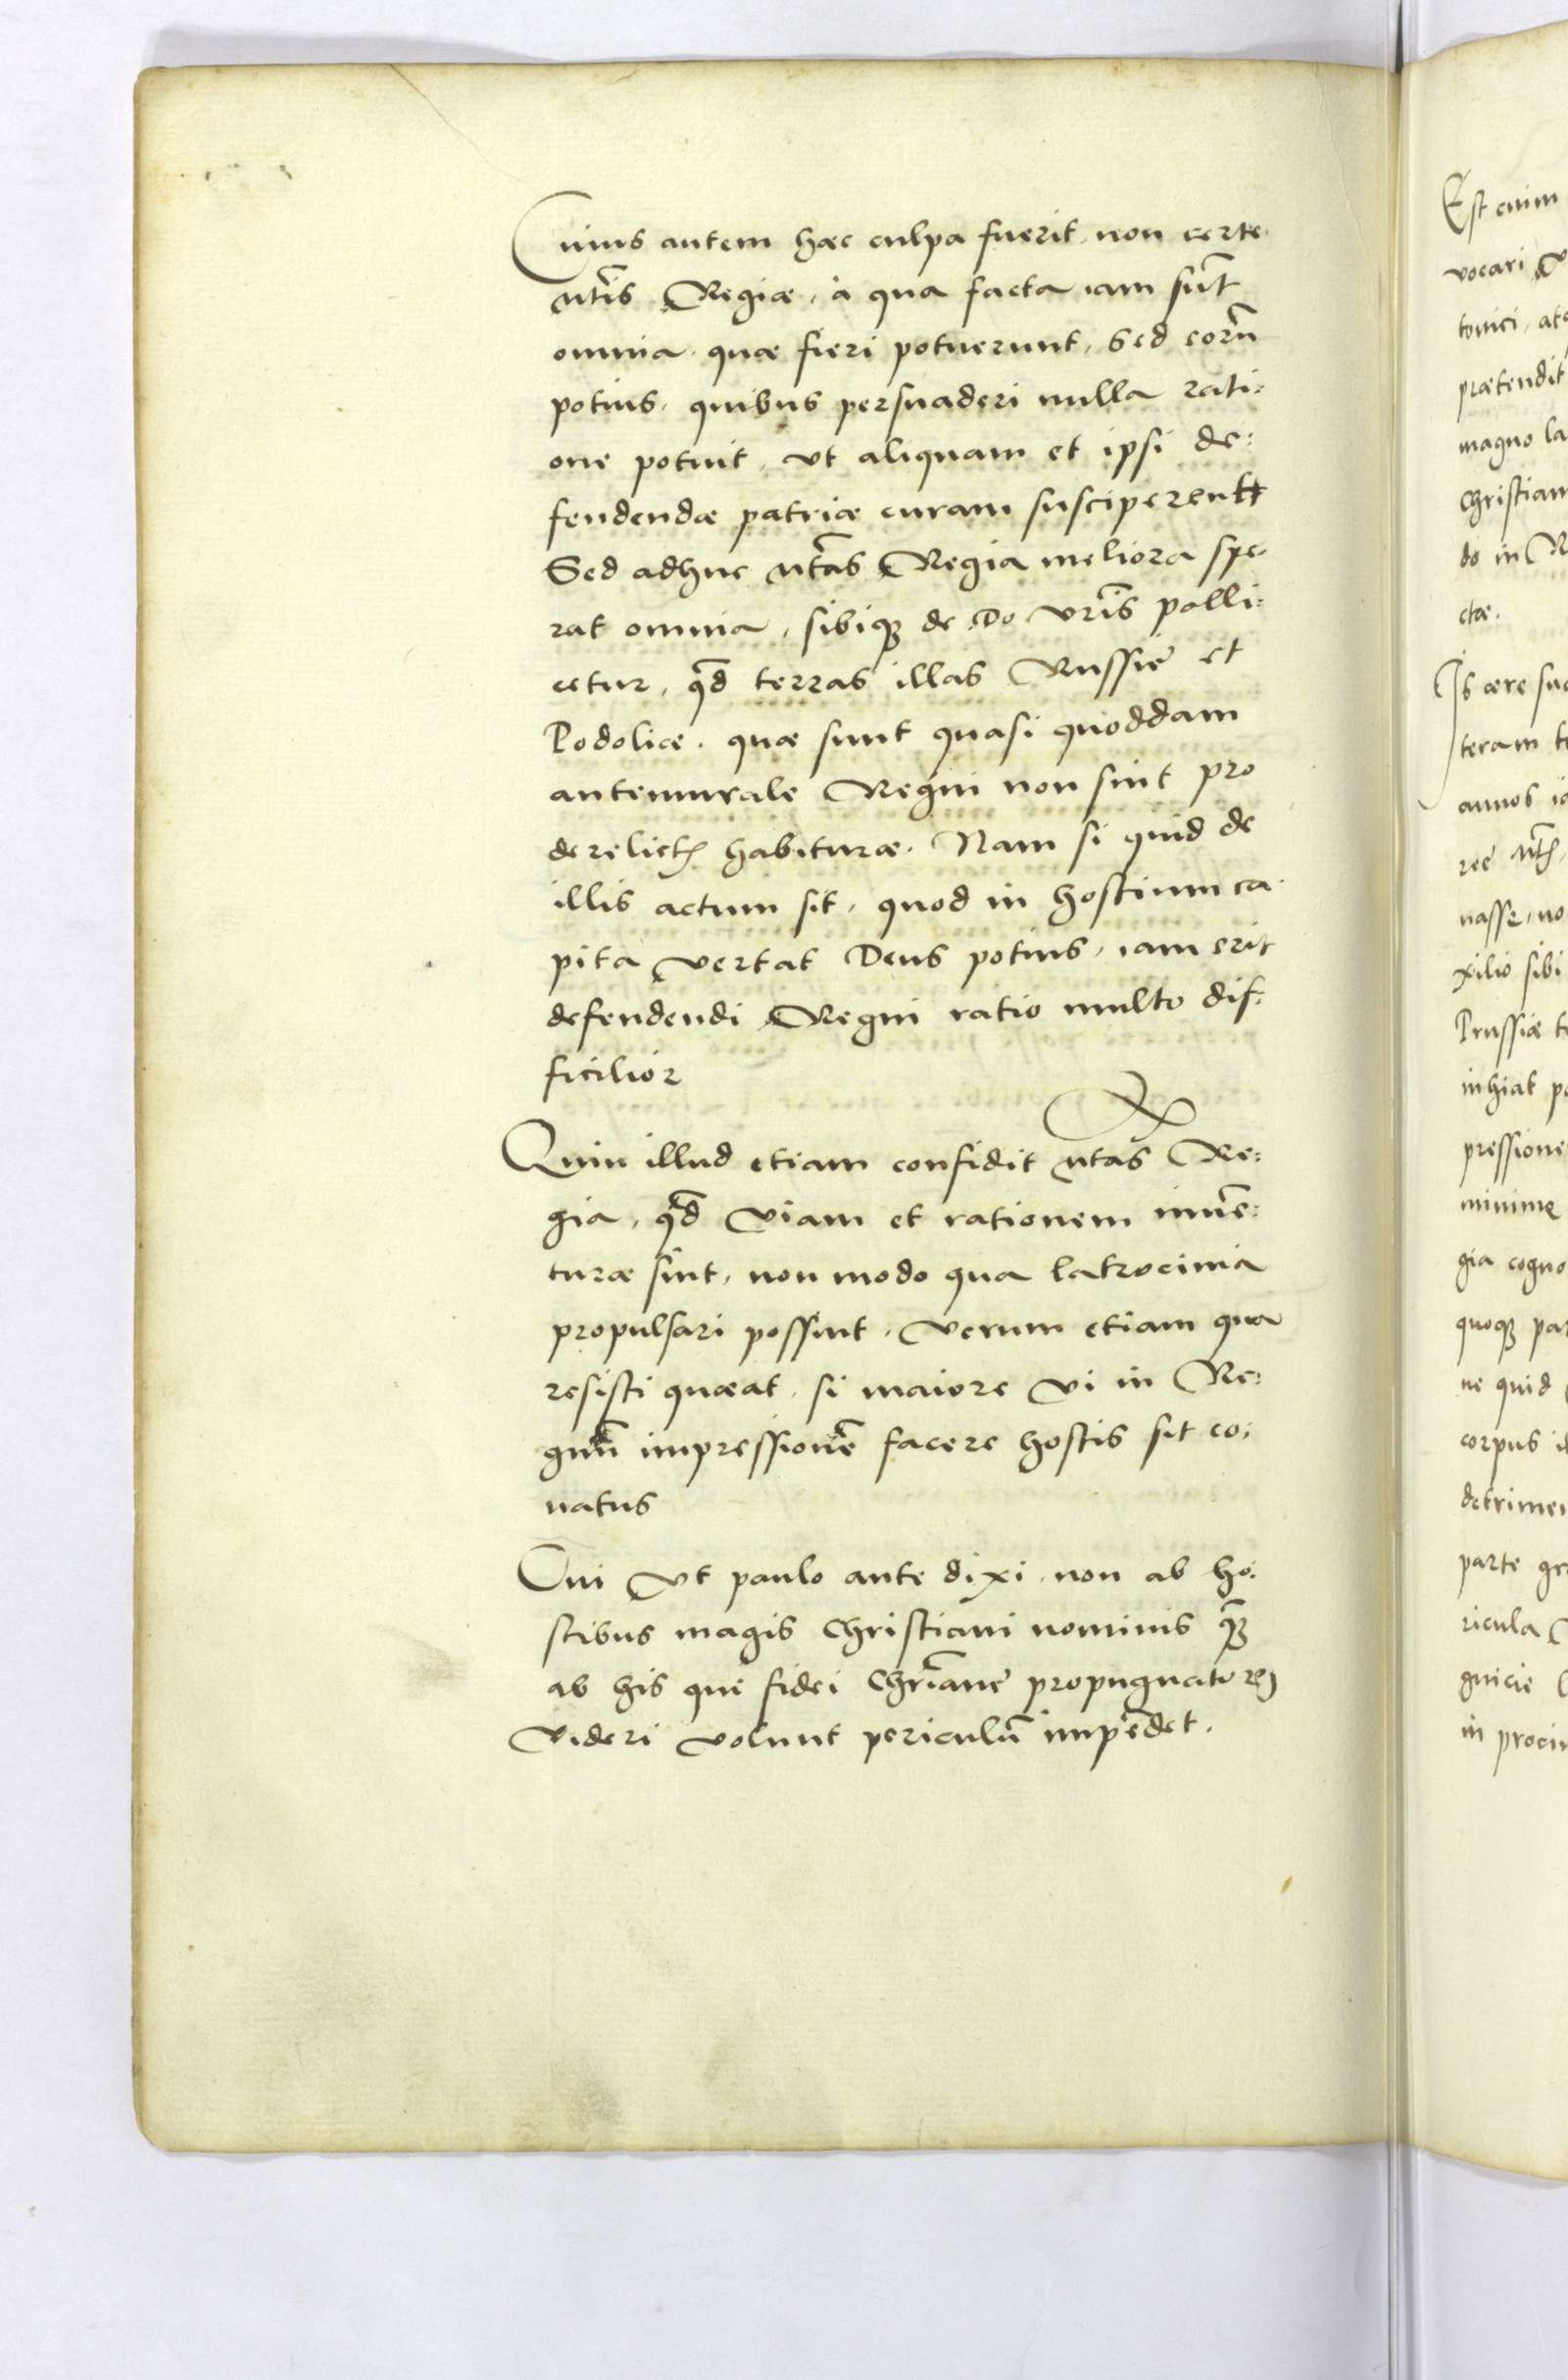 Cuius autem haec culpa fuerit, non certe
Mtis Regiae, a qua facta iam sunt
omnia, quae fieri potuerunt, sed eorũ
potius, quibus persuaderi nulla rati:
one potuit, ut aliquam et ipsi de:
fendendae patriae curam susciperent
Sed adhuc Mtas Regia meliora spe:
rat omnia, sibiq₃ de Do vris polli:
cetur, qd terras illas Russie et
Podoliae, quae sunt quasi quoddam
antemurale Regni non sint pro
derelictis habiturae. Nam si quid de
illis actum sit, quod in hostium ca:
pita vertat Deus potius, iam erit
defendendi Regni ratio multo dif:
ficilior
Quin illud etiam confidit Mtas Re:
gia, qd viam et rationem inuẽ:
turae sint, non modo qua latrocinia
propulsari possint, verum etiam qua
resisti quaeat, si maiore vi in Re:
gnũ impressionẽ facere hostis sit co:
natus
Cui ut paulo ante dixi, non ab ho:
stibus magis Christiani nominis q̃₃
ab his que fidei Chriane propugnatores
videri volunt periculũ impẽdet.
Est enim
vocari
tonici, atq
praetendit
magno la
Christian
do in R
ctae.
Is aere suo
teram te
annos ia
ree Mtis,
nasse, no
xilio sibi
Prussiae te
inhiat pe
pressione
minime
gia cogno
quoq₃ par
ne quid
corpus il
detrimen
parte gr
ricula
gnicie
in procin